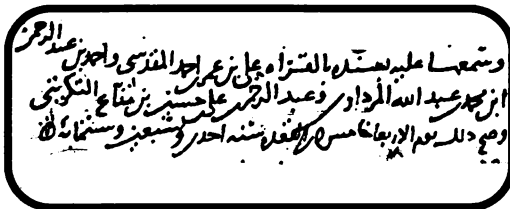 وسمعها عليه بسنده بالقراه علي بن عمر بن احمد المقدسي واحمد بن عبد الرحمن
ابن محمد عبد الله المرداوي وعبد الرحمن علي حسين بن مناع التكريتي
وصح ذلك يوم الاربعا خامس ذي القعده سنه احدى وسبعين وستمائه